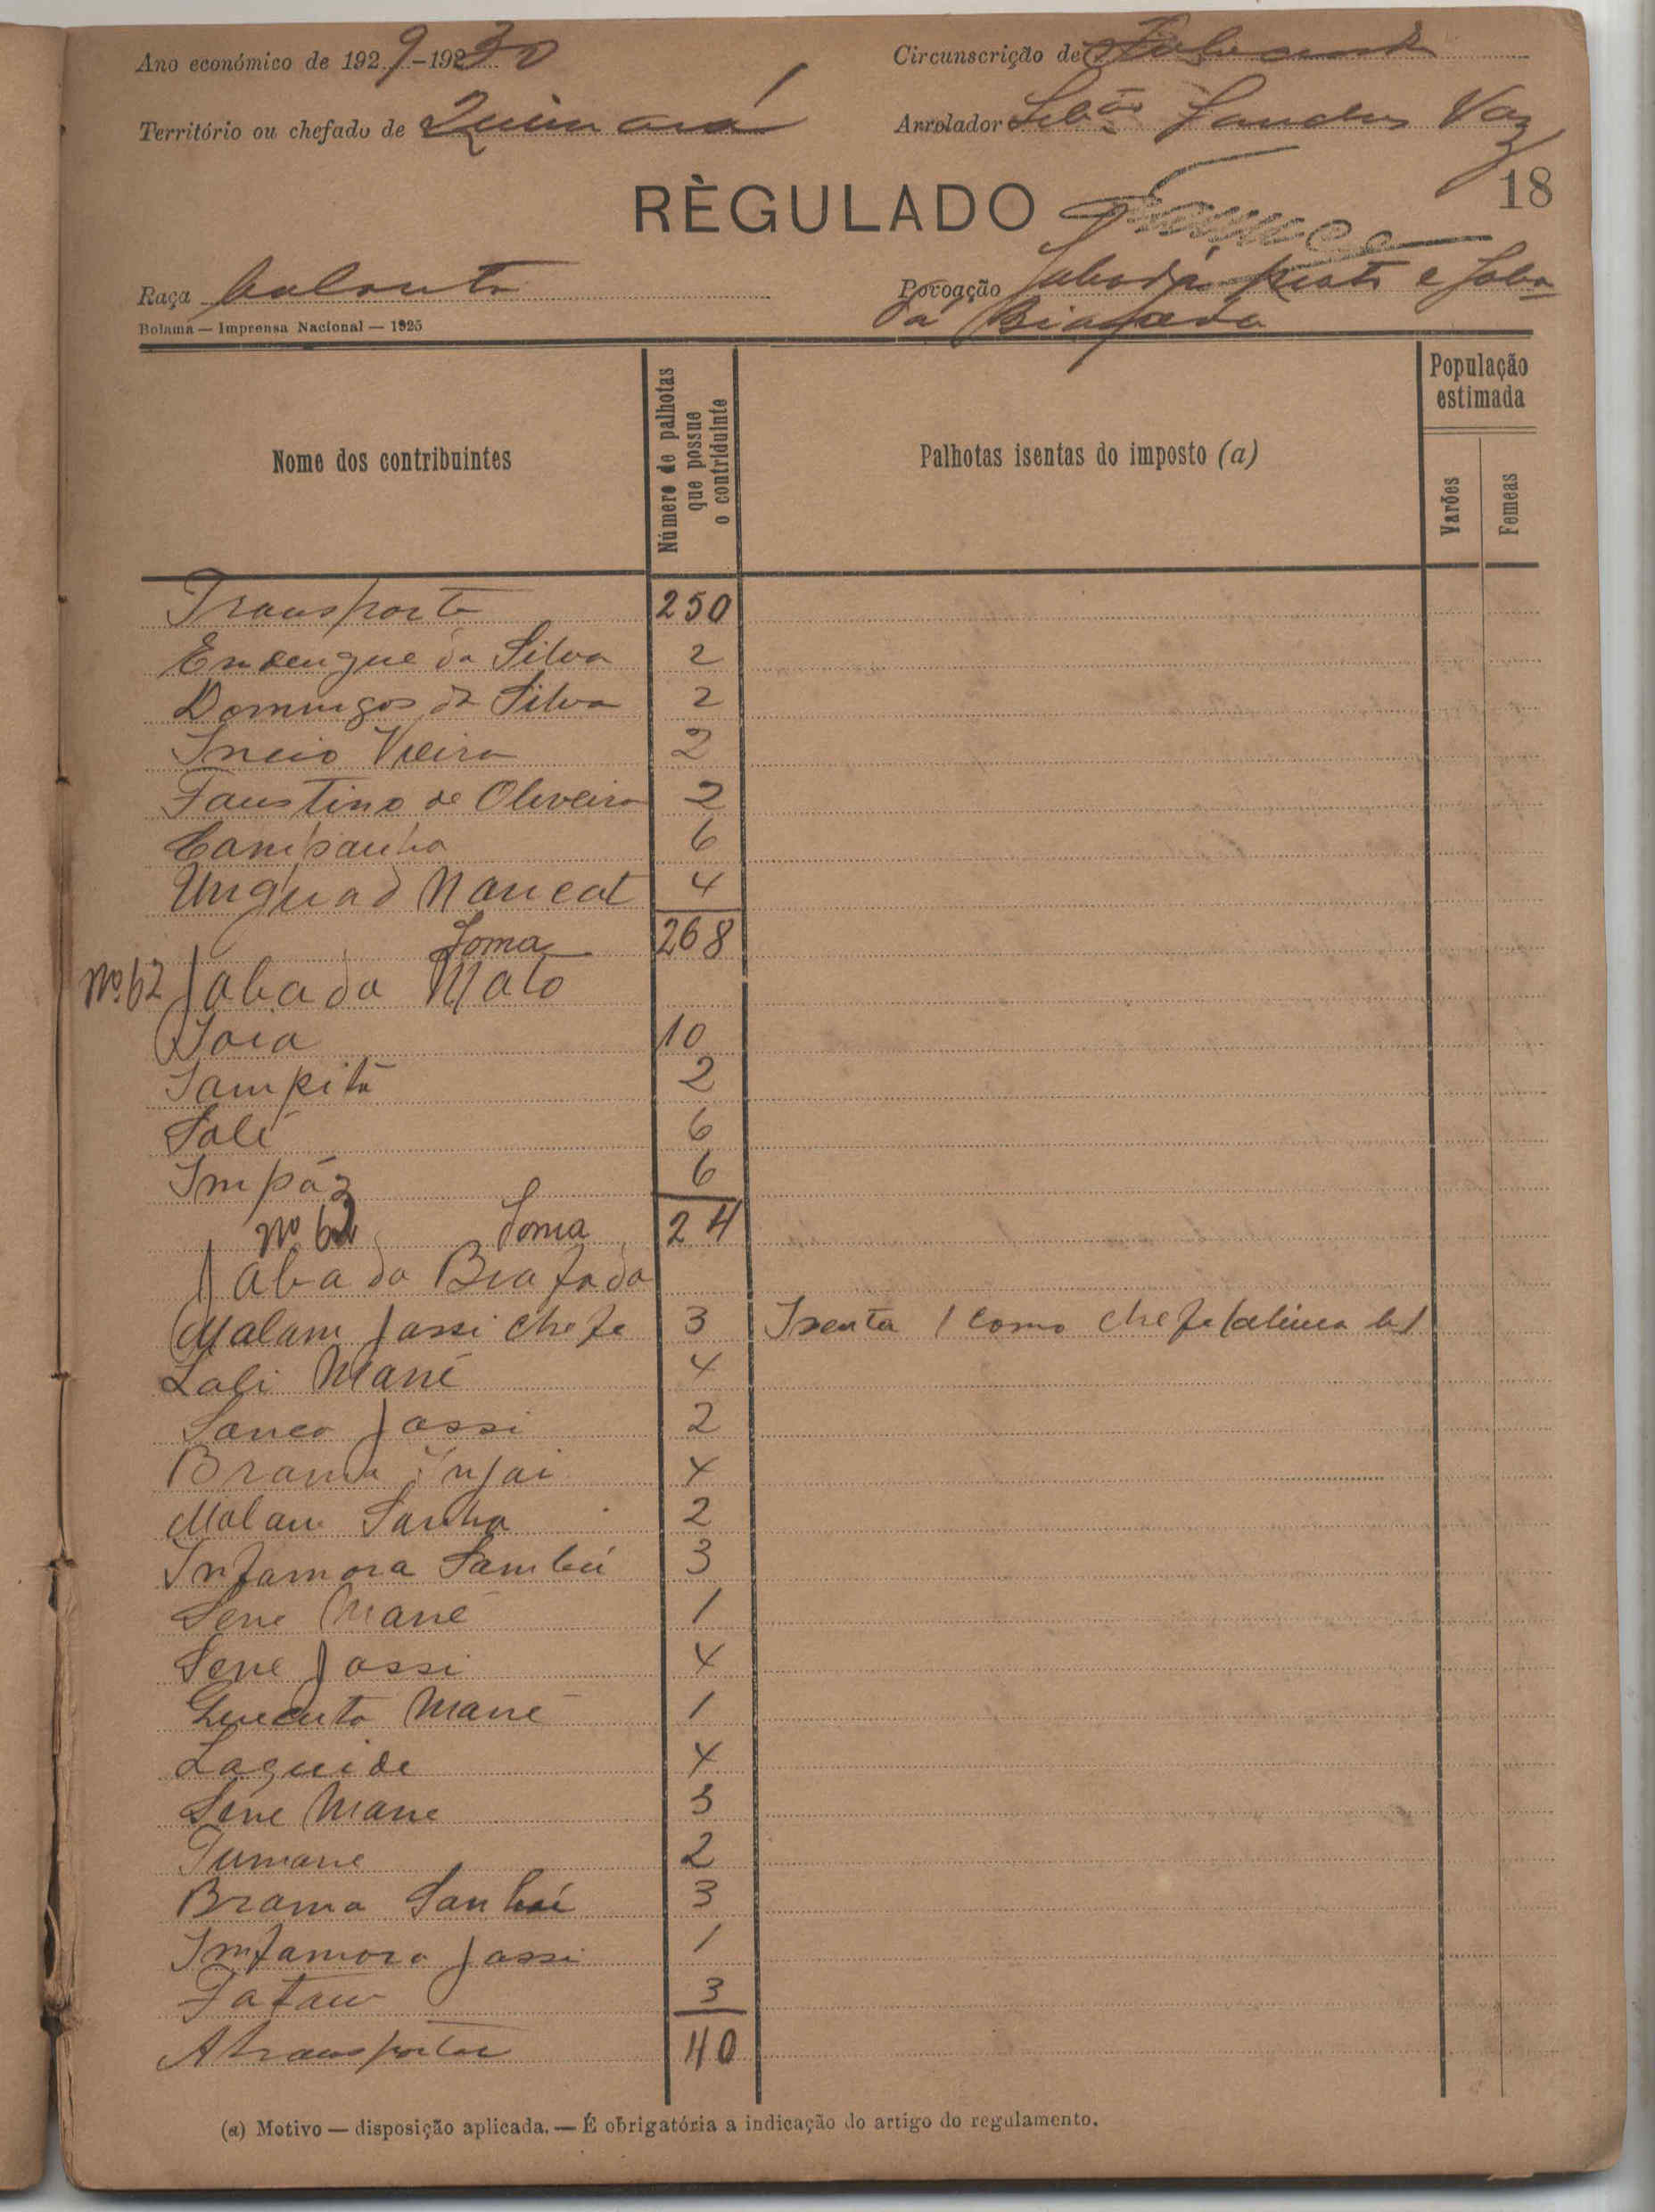 Ano económico de 1929-1930
Circunscrição de
Território ou chefado de Quinará
Arrolador Seb.ão Sandes Vaz
18
RÈGULADO
Raça balanta
Povoação Jabadá e Jaba
dá Biafada
Bolama — Imprensa Nacional — 1925
Nome dos contribuintes
Número de palhotas
que possue
o contriduinte
Palhotas isentas do imposto (a)
População
estimada
Varões
Femeas
Transporte 250
da Silva 2
Domingos da Silva 2
Incio Vieira 2
Faustino de Oliveira 2
Campanha 6
Nancat 4
Soma 268
Nº 62 Jabada Mato
Joia 10
Sampitã 2
Salé 6
Impáz 6
Nº 62 Soma 24
Jabada Biafada
Malam Jassi chefe 3 Isenta (como chefe (alinea b)
Lali Mané 4
Sanco Jassi 2
Brama Injai 4
Malam Sanha 2
Infamora Sambú 3
Sene Mané 1
Sene Jassi 4
Quecuto Mané 1
Laguide 4
Séne Mane 3
Tumane 2
Brama 3
Infamora Jassi 1
Fatau 3
A transportar 40
(a) Motivo — disposição aplicada. — É obrigatória a indicação do artigo do regulamento.